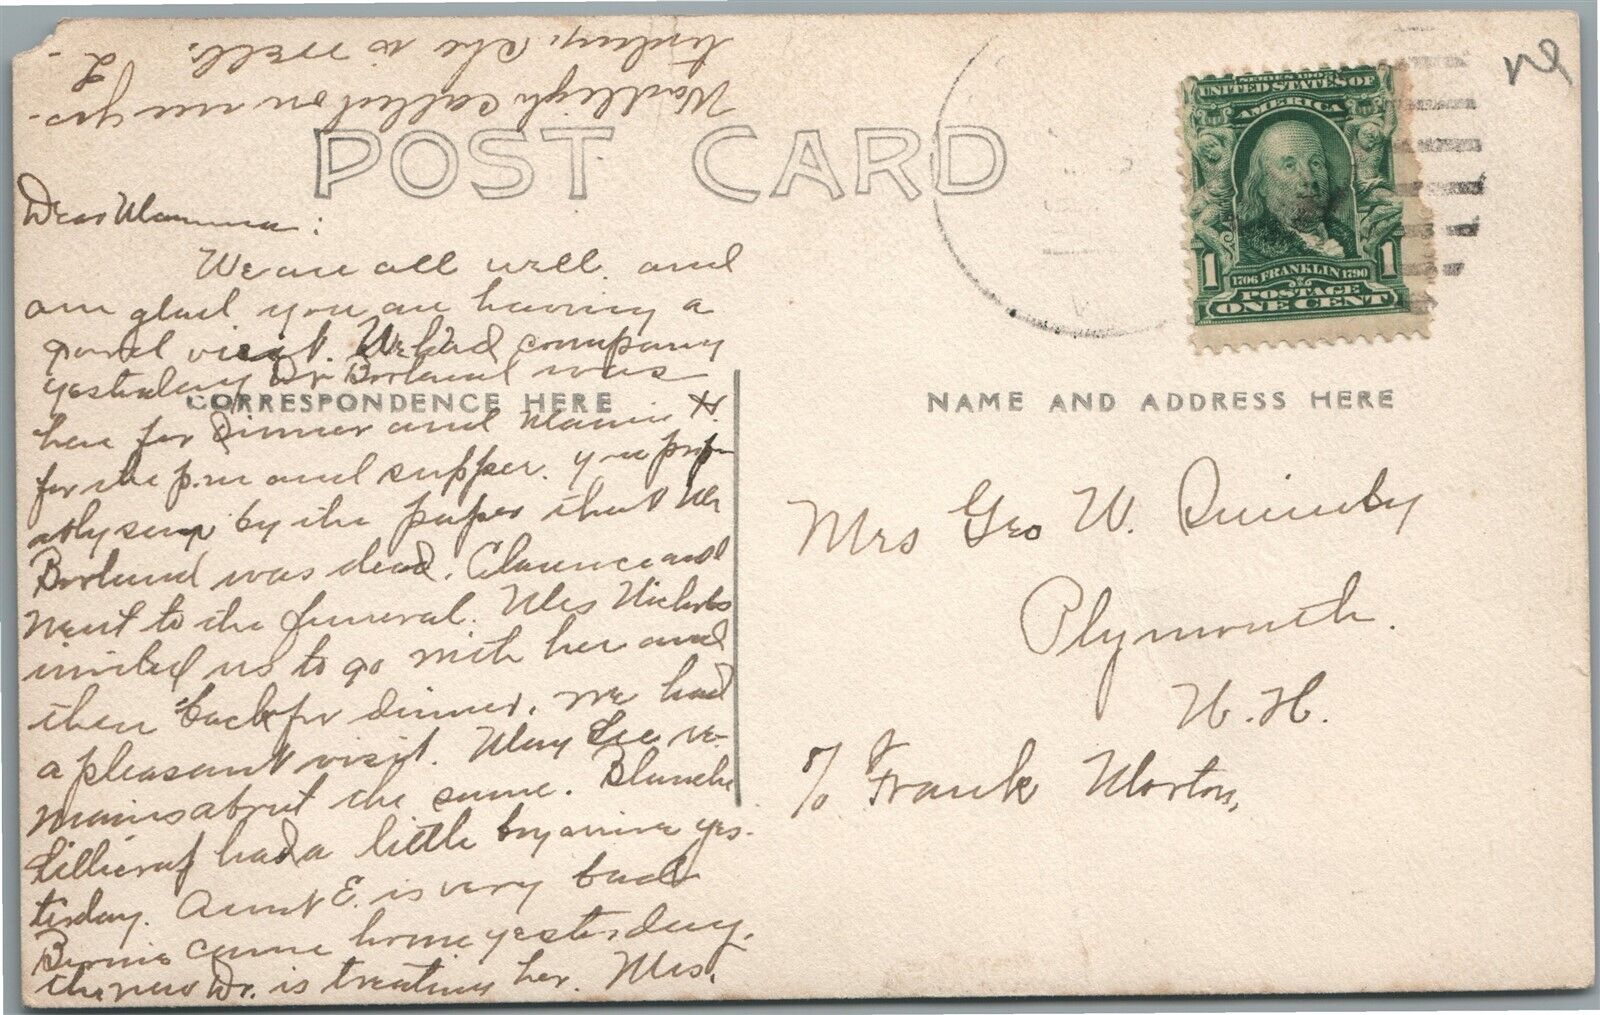 POST CARD
Dear Mamma:
We are all well and
am glad you are having a
good visit. We had company
yesterday Dr Borland was
CORRESPONDENCE HERE
here for dinner and Mamie H.
for the p.m and supper. You prob-
ably saw by the paper that Mr
Borland was dead. Clarence and I
went to the funeral. Mrs Nichols
invited us to go with her and
then back for dinner. We had
a pleasant visit. May Lee re-
mains about the same. Blanche
had a little boy arrive yes-
terday. Aunt E. is very bad
Bernie came home yesterday.
the new Dr. is treating her. Mrs.
Wadleigh called on me yes-
terday, she is well.
L
SERIES 1902
UNITED STATES OF
AMERICA
1 1
1706 FRANKLIN 1790
POSTAGE
ONE CENT
NAME AND ADDRESS HERE
Mrs Geo W. Quimby
Plymouth.
N. H.
% Frank Morton,